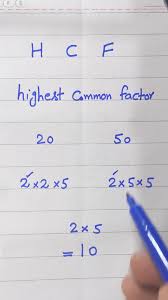 H C F
highest Common factor
20 50
2×2×5 2×5×5
2×5
=10